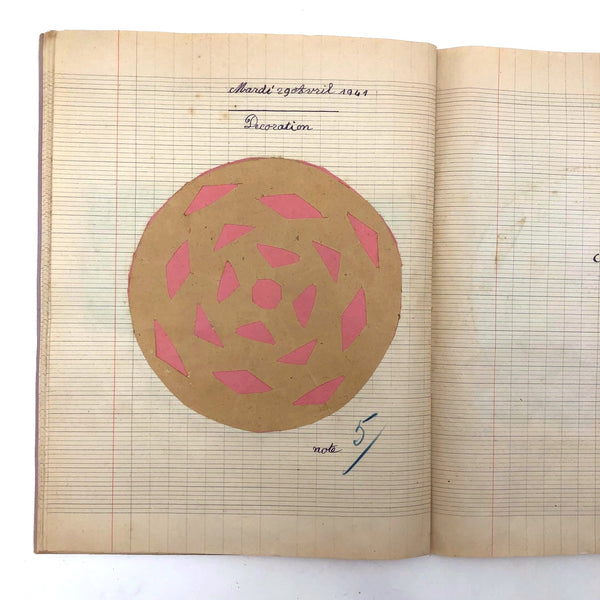 Mardi 29 Avril 1941
Decoration
note 5/